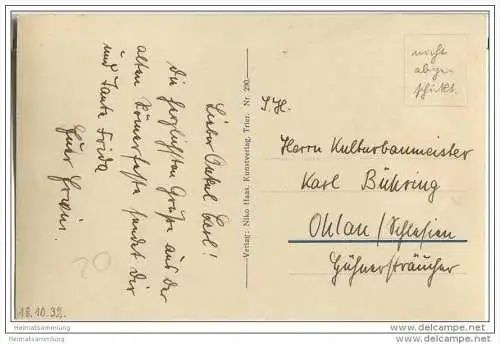 Lieber Onkel Carl!
die herzlichsten Grüße aus der
alten Römerfeste sendet Dir
und Tante Frida
Euer
Verlag: Niko Haas, Kunstverlag, Trier. Nr. 290
nicht
abge-
schickt.
S.H.
Herrn Kulturbaumeister
Karl Bühring
Ohlau/Schlesien
20
18.10.32.
Heimatsammlung
Heimatsammlung
www.delcampe.net
www.delcampe.net